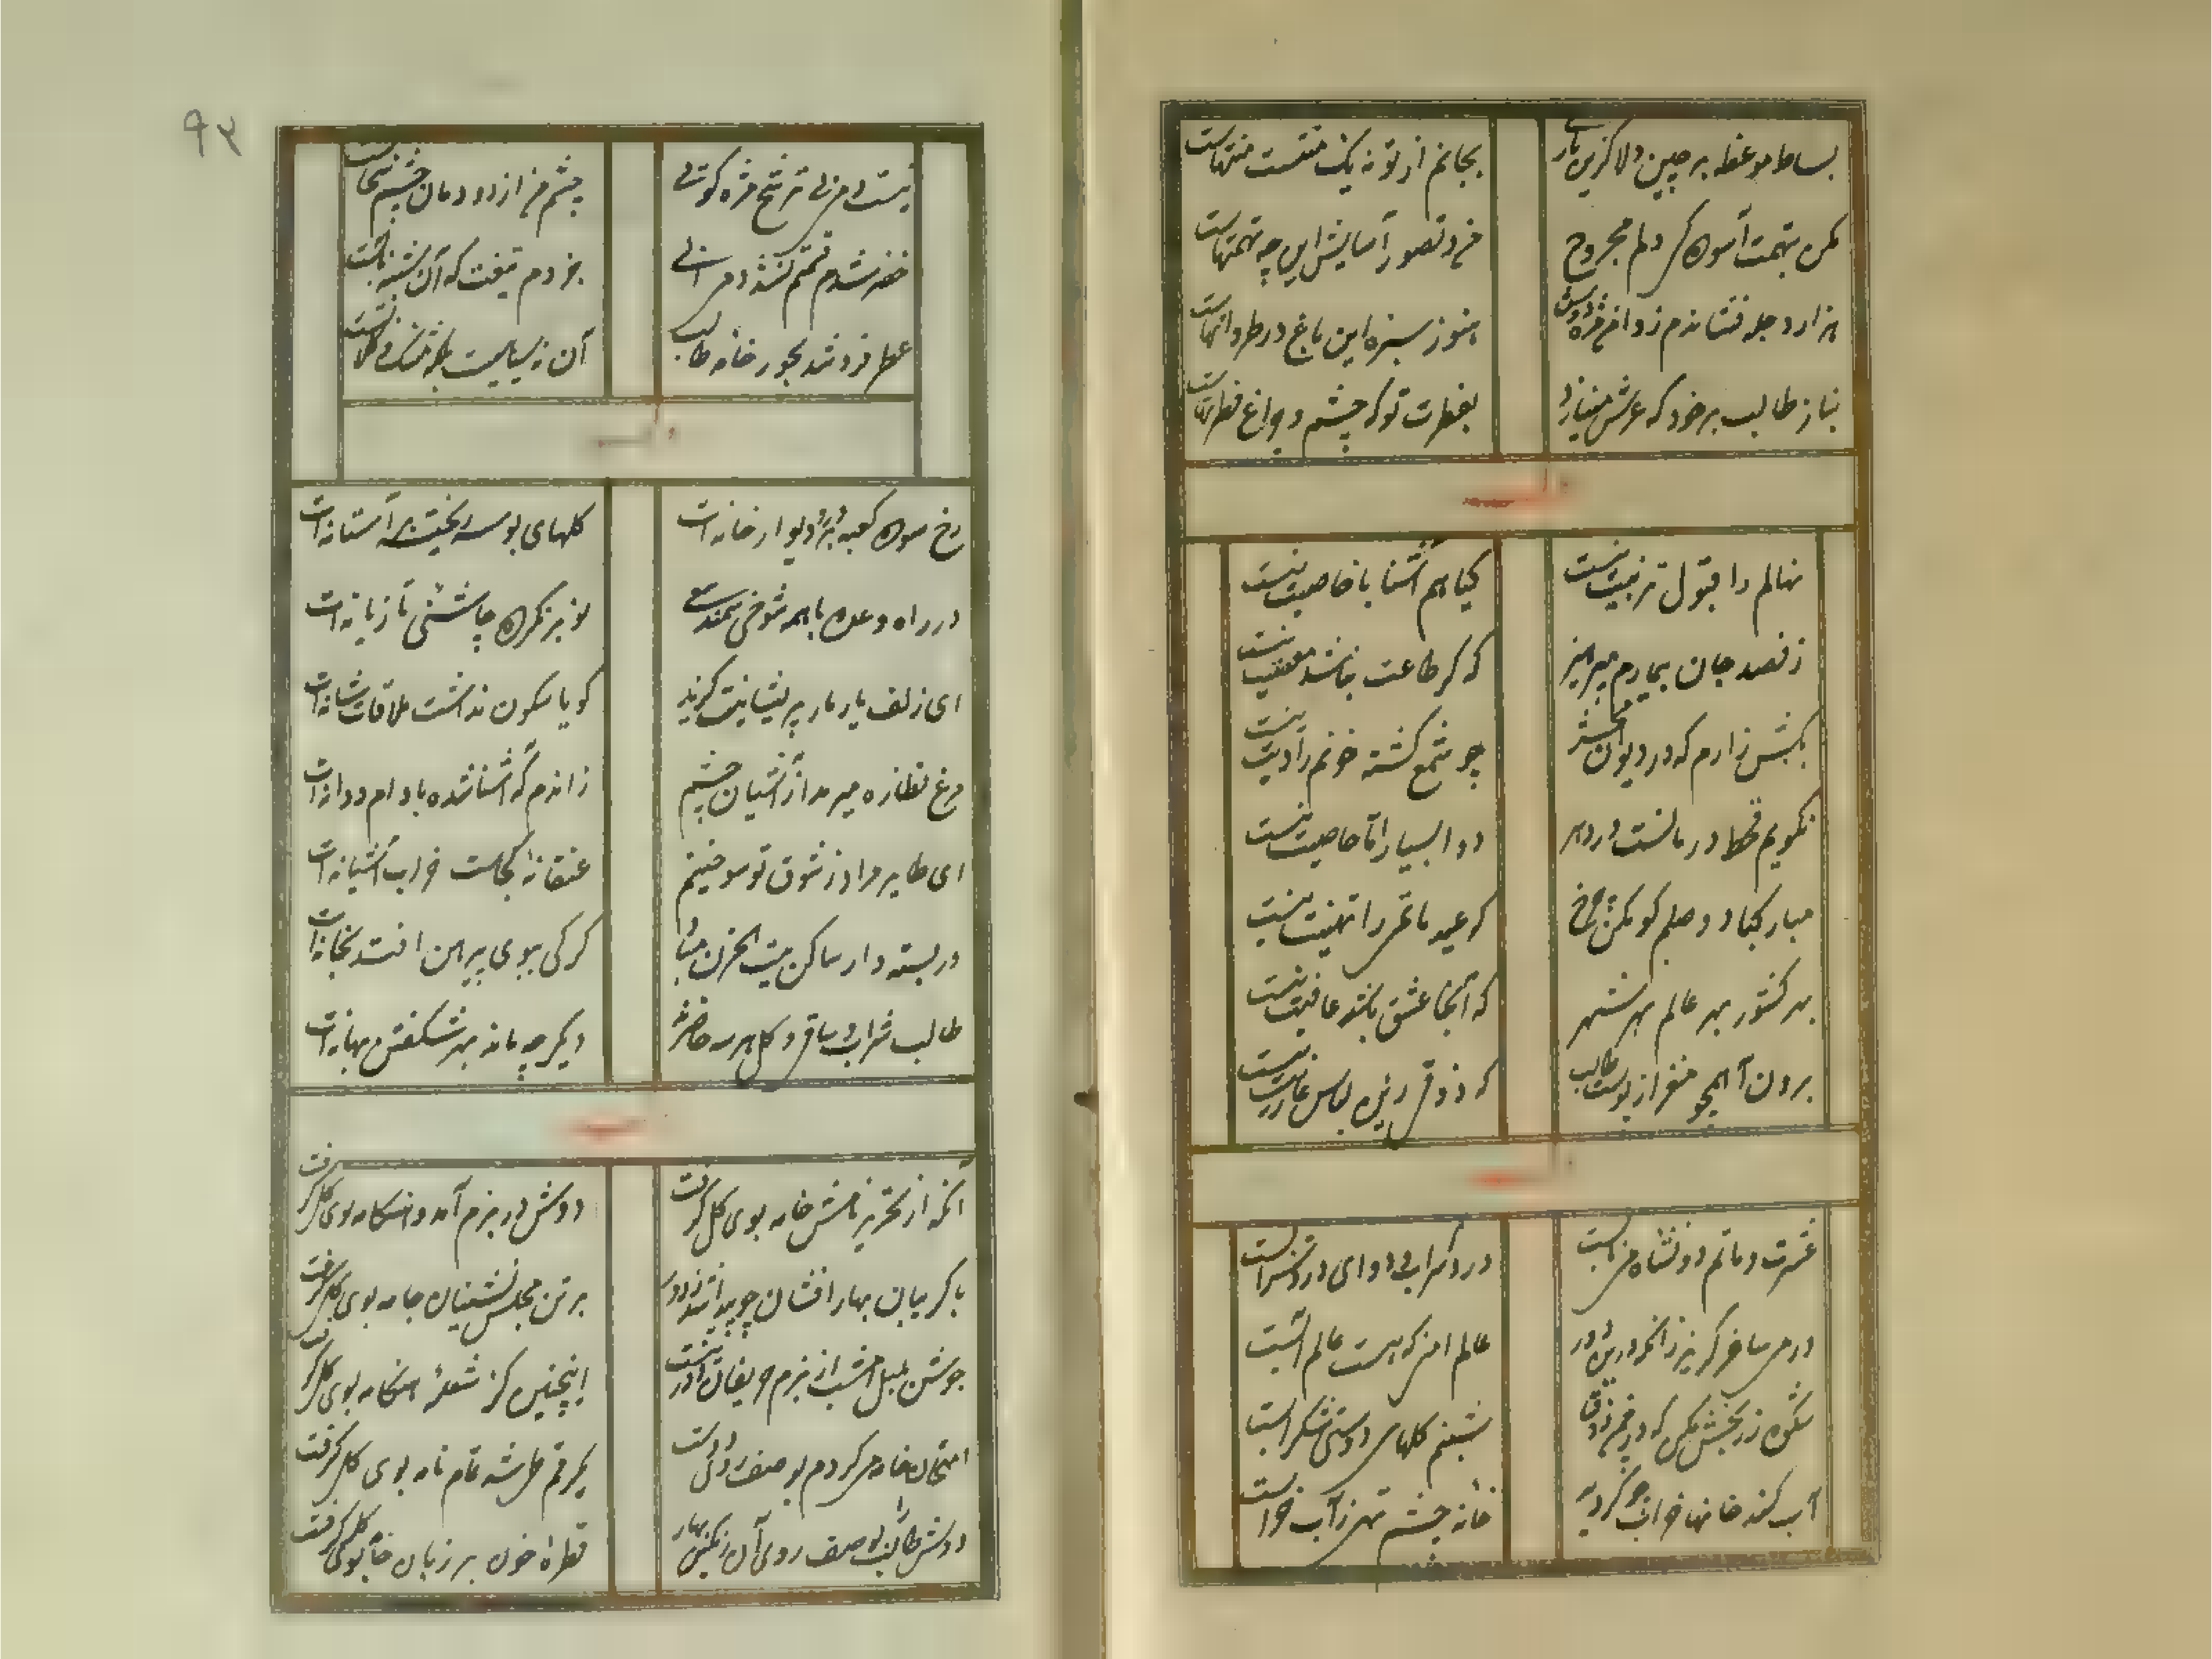 بساط موعظه برچین دلا کزین
بجانم از تو نه یک منتست منتهاست
مکن بتهمت آسوده کی دلم مجروح
من و تصور آسایش این چه تهمتهاست
هزار دجله فشاندم ز دامن مژه
هنوز سبزه این باغ در طراوتهاست
بناز طالب بر خود که عرش مینازد
بفطرت تو که چشم و چراغ فطرتهاست
نهالم را قبول تربیت نیست
گیاهم آشنا با خاصیت نیست
ز قصد جان بیمارم مپرهیز
که گر طاعت نباشد معصیت نیست
بکش زارم که در دیوان محشر
چو شمع کشته خونم را دیت نیست
نگویم قحط درمانست در دهر
دوا بسیار اما خاصیت نیست
مبارکباد وصلم گو مکن چرخ
که عید ماتمی را تهنیت نیست
بهر کشور بهر عالم بهر شهر
که آنجا عشق باشد عافیت نیست
برون آ همچو مغز از پوست طالب
که ذوقی در لباس عاریت نیست
عشرت و ماتم دو نشاه
درد شراب دوای درد
در می ساغر گریز زانکه درین دور
عالم امنی که هست عالم آبست
شکوه ز رنجش مکن که در
شبنم گلهای دوستی شکرابست
آب کند خانها خراب
خانه چشم تهی ز آب خرابست
۹۳
نیست دمی بی ترشح مژه گوئی
چشم من از دودمان چشم
خضر شدم قسمتم نشد
عطر فروشد بجور خانه طالب
رخ سوده کعبه بر در و دیوار خانه‌ات
گلهای بوسه ریخته بر آستانه‌ات
در راه وعده با همه شوخی سمند
بوئی نکرده چاشنی تازیانه‌ات
ای زلف یار مار پریشانیت گزید
گویا شکون نداشت ملاقات شانه‌ات
مرغ نظاره میرمد از آشیان چشم
زاندم که آشنا شده با دام و دانه‌ات
ای طایر مراد ز شوق تو سوختیم
عنقا نه کجاست خراب آشیانه‌ات
در بسته دار ساکن بیت الحزن
گر کی ببوی پیرهن افتد بخانه‌ات
طالب شراب و ساقی و گل هر سه حاضرند
دیگر چه مانده بهر شکفتن بهانه‌ات
آنکه از تحریر نامش خامه بوی گل گرفت
دوش در بزم آمد و هنگامه بوی گل گرفت
با گریبان بهار افشان چو پیدا شد ز دور
بر تن مجلس نشینان جامه بوی گل گرفت
جوشن بلبل امشب از بزم حریفان
اینچنین کز شعله هنگامه بوی گل گرفت
امتحان خامه میکردم بوصف روی دوست
یک رقم طی شد تمام نامه بوی گل گرفت
دوش طالب بوصف روی آن رنگین بهار
قطره خون بر زبان خامه بوی گل گرفت